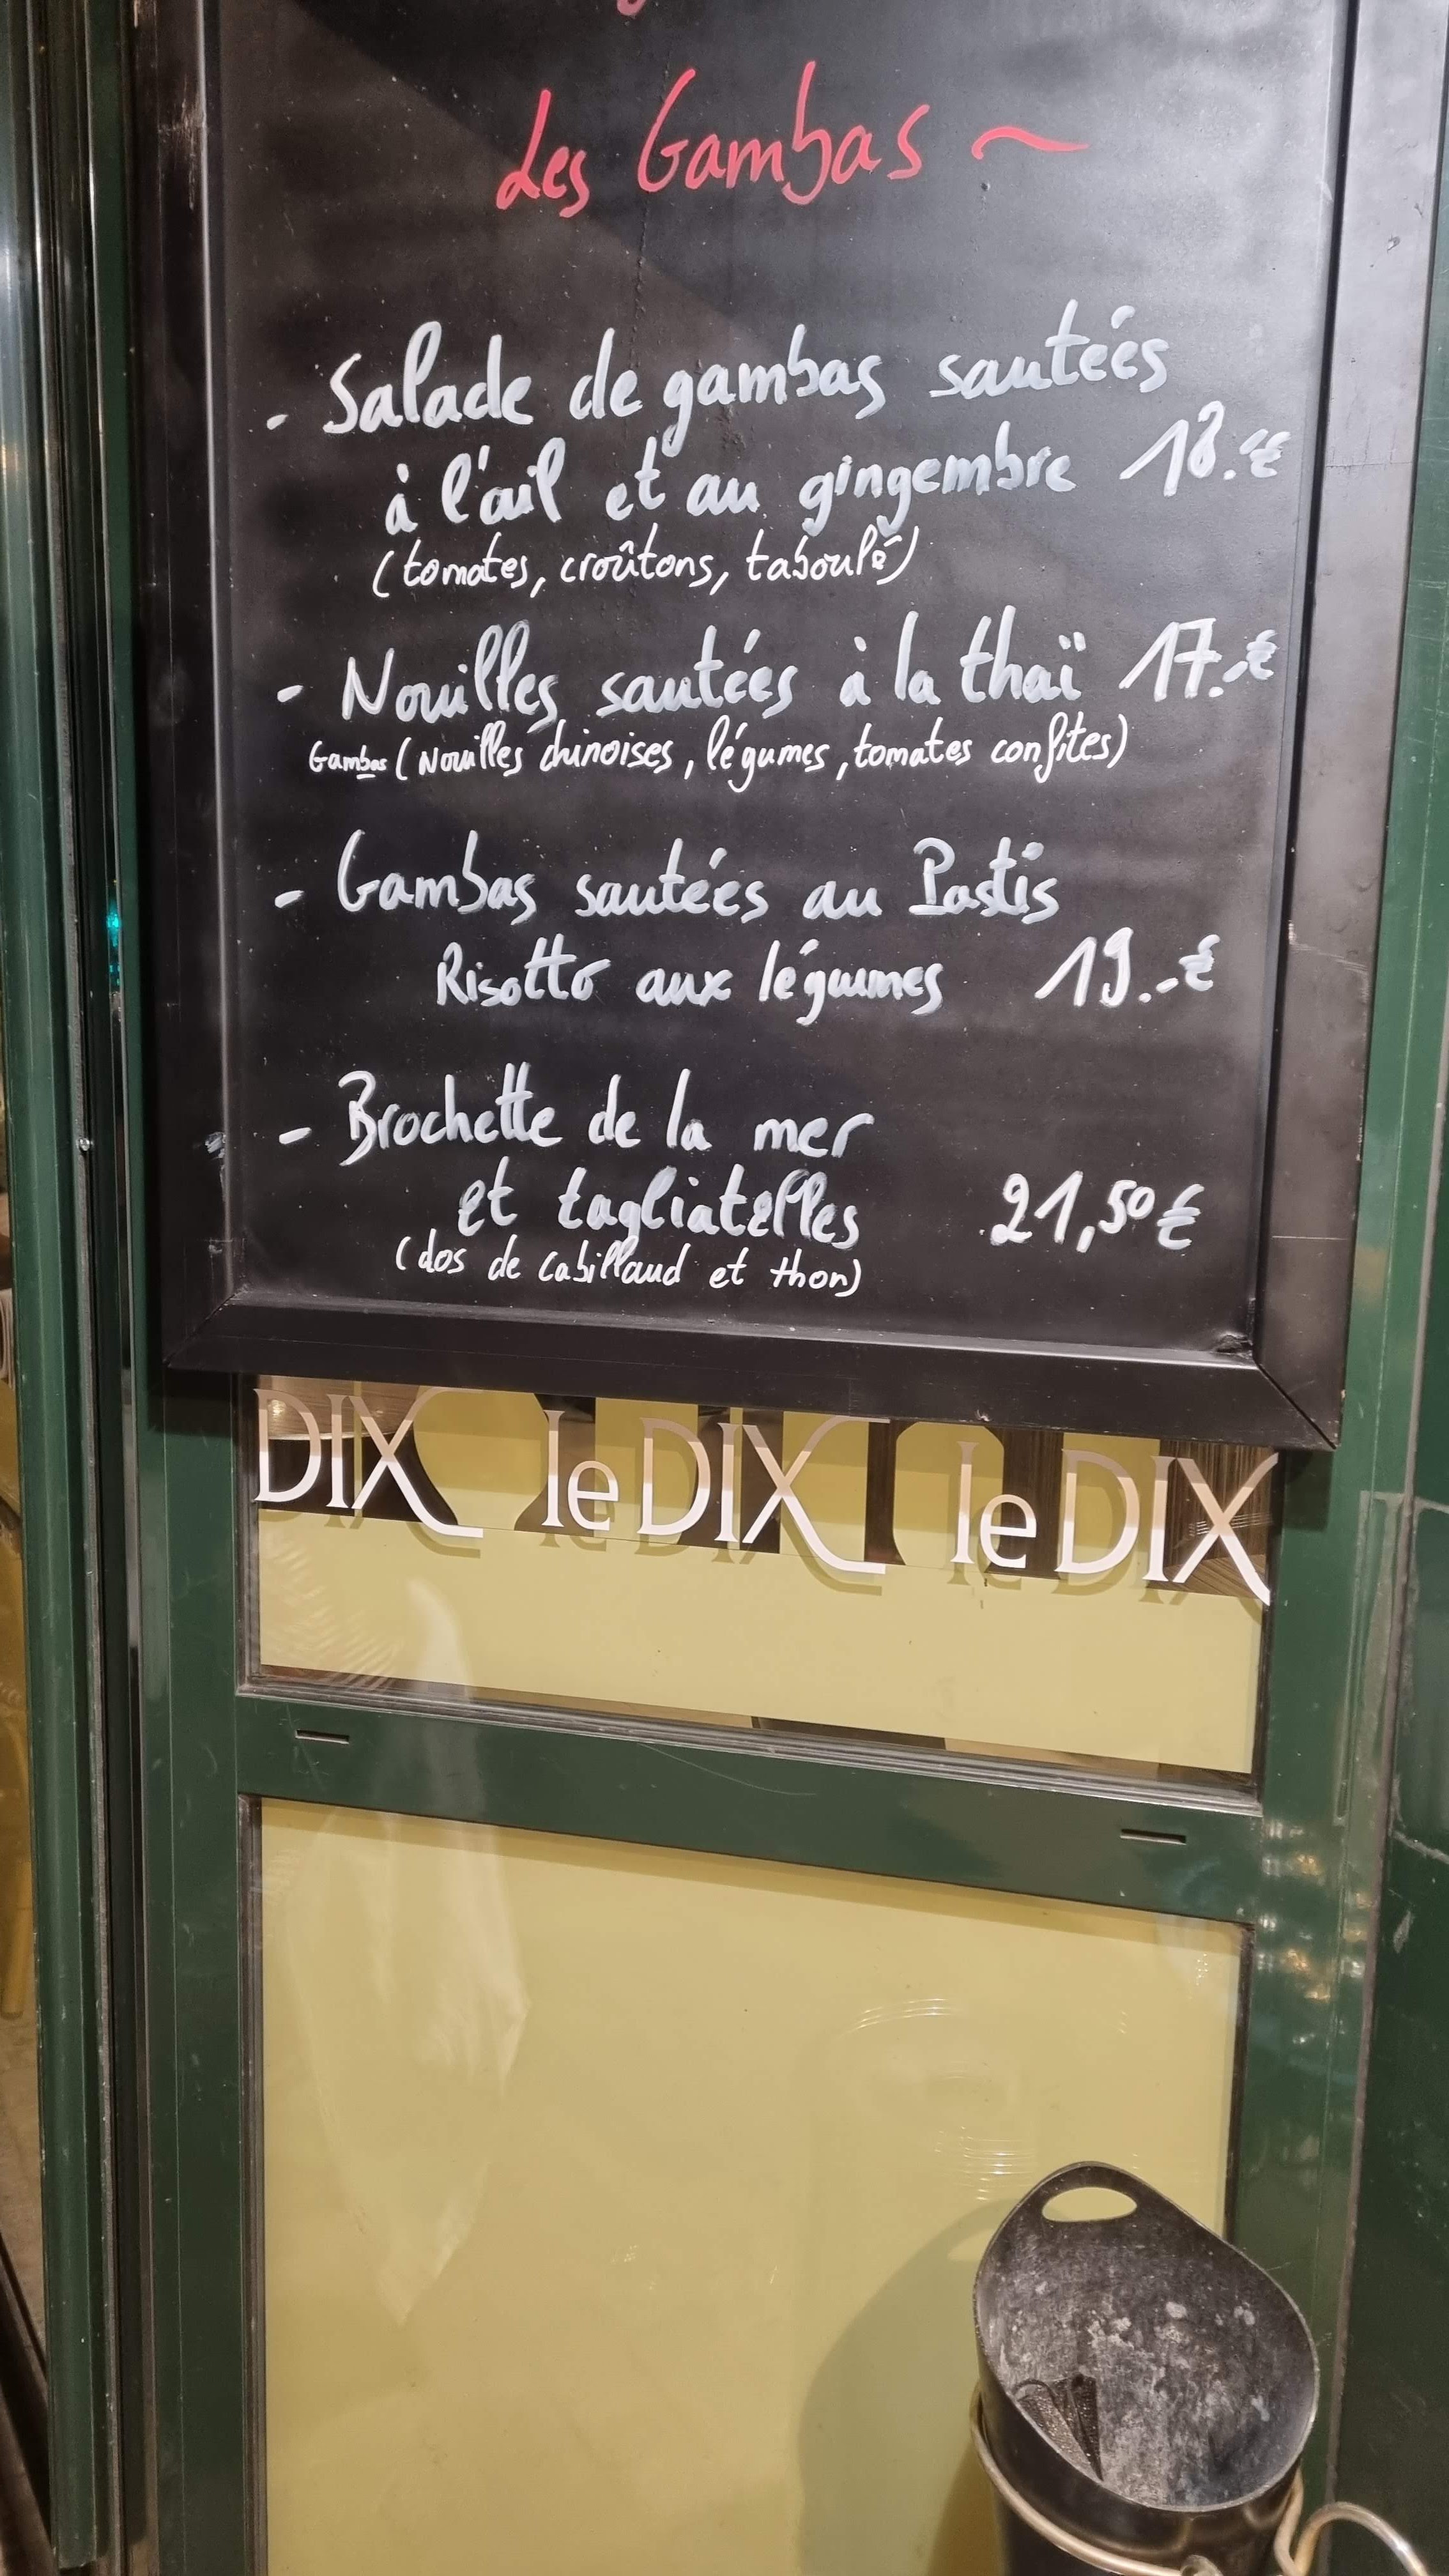 Les Gambas ~
- Salade de gambas sautées
à l'ail et au gingembre 18.-€
(tomates, croûtons, taboulé)
- Nouilles sautées à la thaï 17.-€
Gambas (Nouilles chinoises, légumes, tomates confites)
- Gambas sautées au Pastis
Risotto aux légumes 19.-€
- Brochette de la mer
et tagliatelles 21,50€
(dos de cabillaud et thon)
DIX le DIX le DIX